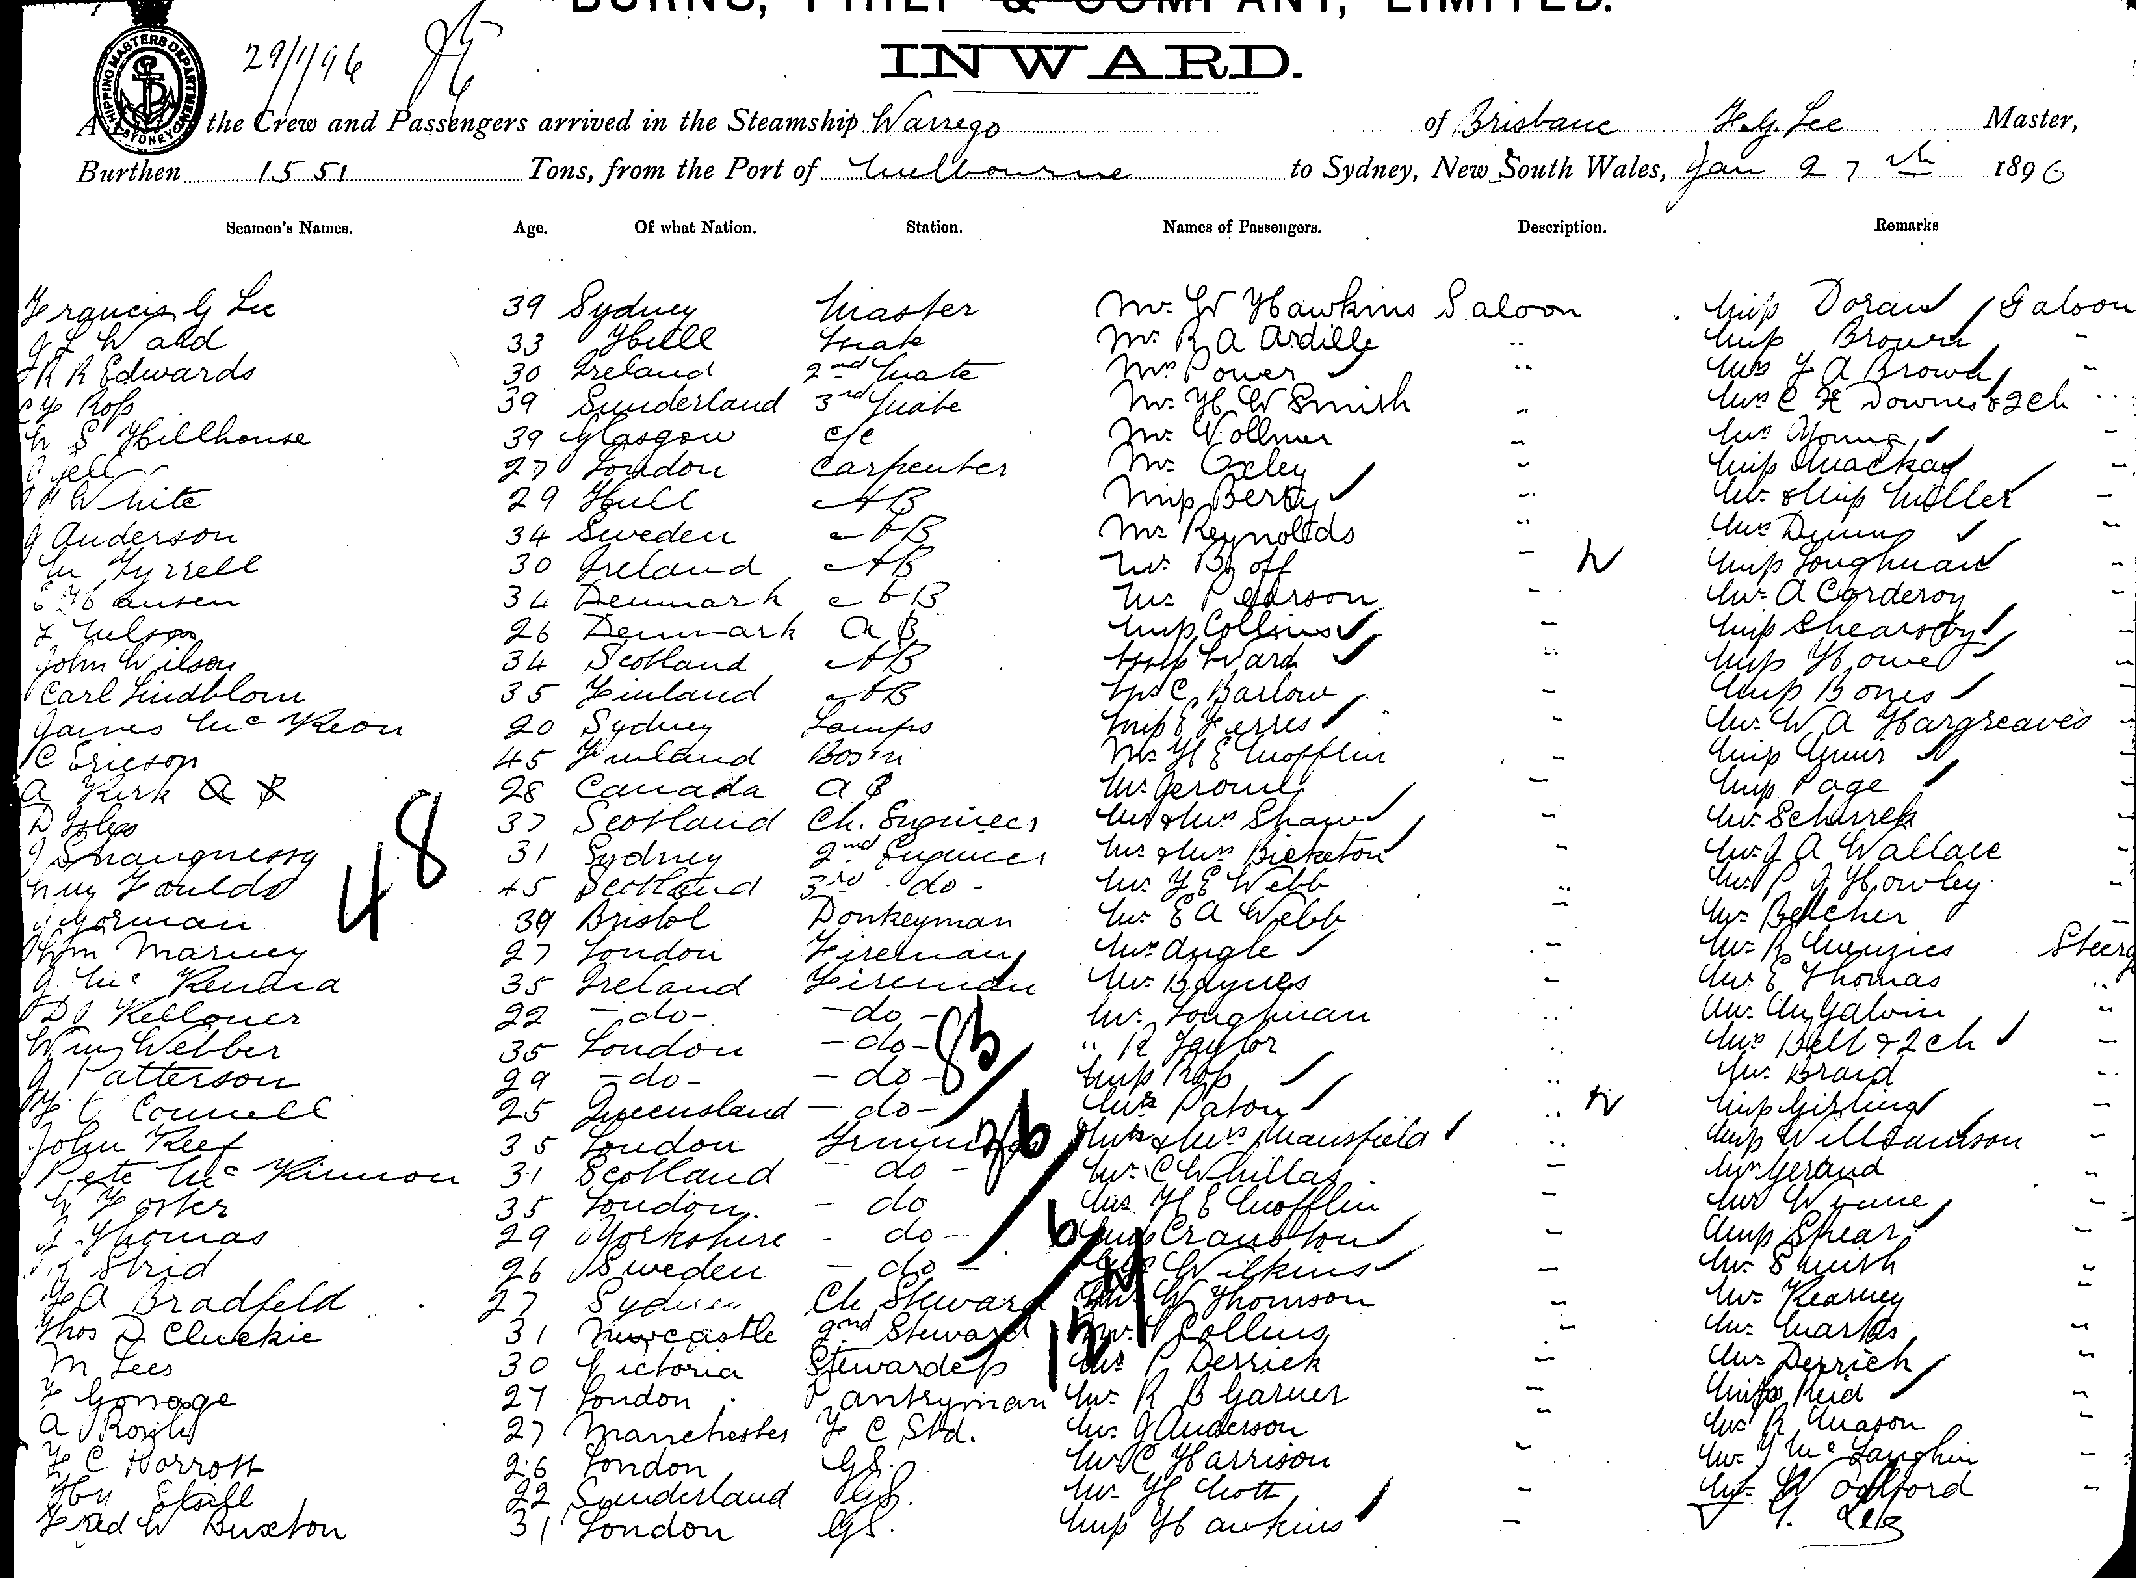 BURNS, PHILP & COMPANY, LIMITED.
INWARD.
SHIPPING MASTERS DEPARTMENT SYDNEY
29/1/96
the Crew and Passengers arrived in the Steamship Warrego of Brisbane F.G. Lee Master,
Burthen 1551 Tons, from the Port of Melbourne to Sydney, New South Wales, Jan 27th 1896
Seamen's Names. Age. Of what Nation. Station. Names of Passengers. Description. Remarks
Francis G Lee 39 Sydney Master Mr. W Hawkins Saloon Miss Doran Saloon
J L Wald 33 Hull Mate Mr. R A Ardille " Miss Brown "
R Edwards 30 Ireland 2nd Mate Mrs Power " Mrs J A Brown "
Ross 39 Sunderland 3rd Mate Mr. H W Smith " Mrs C H Downes & 2 ch "
S Hillhouse 39 Glasgow c/c Mr Vollmer " Mrs Young "
Jell 27 London Carpenter Mr Oxley " Miss Mackay "
White 29 Hull AB Miss Berry " Mr. & Miss Miller "
J Anderson 34 Sweden AB Mr Reynolds " Mrs Dunn "
M Tyrrell 30 Ireland AB Mr. Boff " Miss Loughnan "
Hansen 34 Denmark AB Mr Pearson " Mr. A Corderoy "
Nelson 26 Denmark AB Miss Collins " Miss Shearsby
John Wilson 34 Scotland AB Miss Ward " Miss Howe "
Carl Lindblom 35 Finland AB Mr C Barlow " Miss Bones "
James McKeon 20 Sydney Lamps Miss E Ferres " Mr. W A Hargreaves "
C Ericson 45 Finland Bosn Mr H E Mofflin " Miss Muir "
A Kirk 28 Canada AB Mr Jerome " Miss Page "
D Isles 37 Scotland Ch. Engineer Mr & Mrs Shaw " Mr Schirrek "
J Shaugnessy 31 Sydney 2nd Engineer Mr & Mrs Bickerton " Mr. J A Wallace
Wm Foulds 45 Scotland 3rd - do - Mr. J E Webb " Mr P J Howley "
J Gorman 39 Bristol Donkeyman Mr. E A Webb " Mr Belcher "
Wm Marney 27 London Fireman Mrs Angle " Mr. R Menzies Steerg
J McKendra 35 Ireland Fireman Mr. Baynes " Mr E Thomas "
D J Kellouer 22 - do - - do - Mr. Loughnan " Mr. M Galvin "
Wm Webber 35 London - do - " R Taylor " Mrs Bell & 2 ch "
J Patterson 29 - do - - do - Miss Ross " Mr. Braid "
Connell 25 Queensland - do - Mrs Paton " Miss Girling "
John Keef 35 London Trimmer Mr & Mrs Mansfield " Miss Williamson
Pete McKinnon 31 Scotland - do - Mr. C Whillas " Mr Gerand "
W Foster 35 London - do Mrs H E Mofflin " Mrs Wynne "
J Thomas 29 Yorkshire - do - Miss Cranston " Miss Shear "
Strid 26 Sweden - do - Wilkins " Mr. Smith "
F A Bradfeld 27 Sydney Ch Steward Mr W Thomson " Mr. Kearney "
Thos D Cluckie 31 Newcastle 2nd Steward Mr. Collins " Mr. Marks "
M Lees 30 Victoria Stewardess Mr P Derrick " Mrs Derrick "
F Gonage 27 London Pantryman Mr. R B Garner " Miss Reid "
A 27 Manchester F C Std. Mr. J Anderson " Mr R Mason "
F C Horrott 26 London GS. Mr C Harrison " Mr. J McLaughlin "
Hy Still 22 Sunderland GS. Mr. H Mott " Mr. W Odlford "
Fred W Buxton 31 London GS. Miss Hawkins "
48